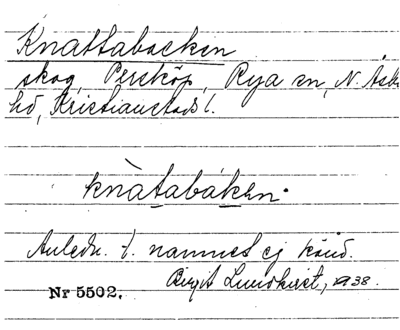 Knattabacken
skog, Persköp, Rya sn, N. Åsbo
hd, Kristianstads l.
knàtabáken.
Anledn. t. namnet ej känd.
Birgit Lundkvist, 1938.
Nr 5502.